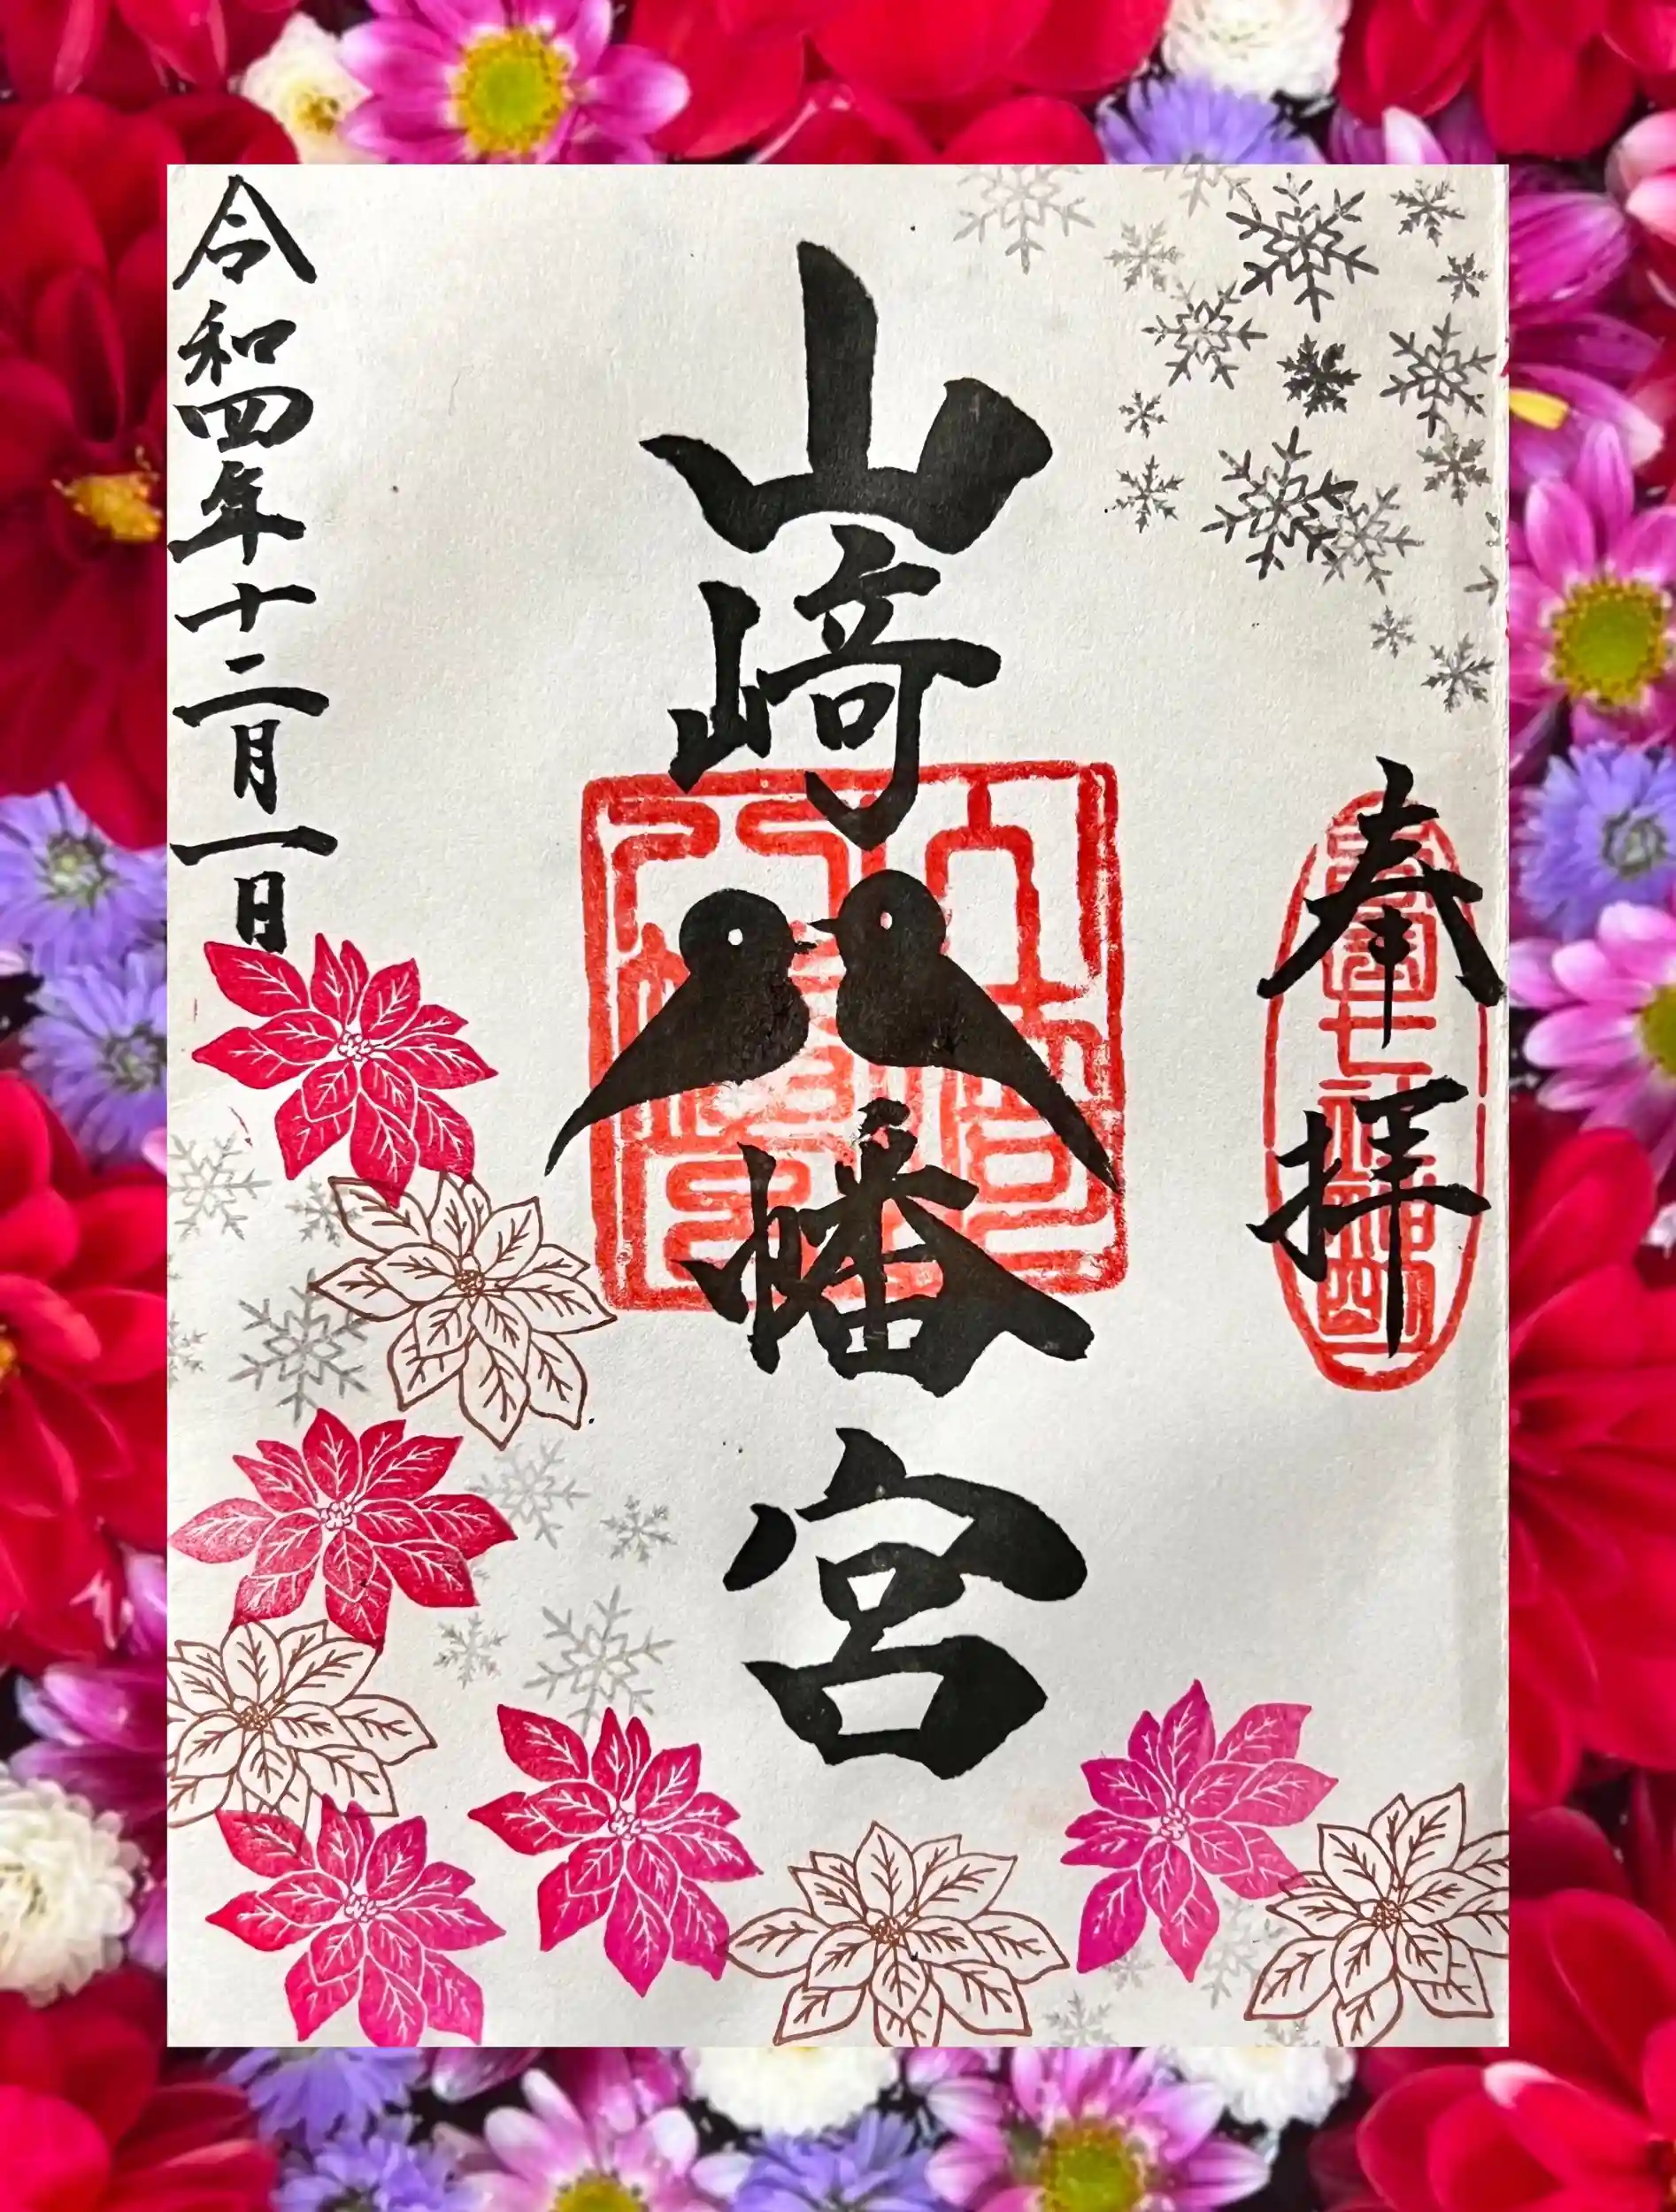 奉拝
山﨑八幡宮
令和四年十二月一日